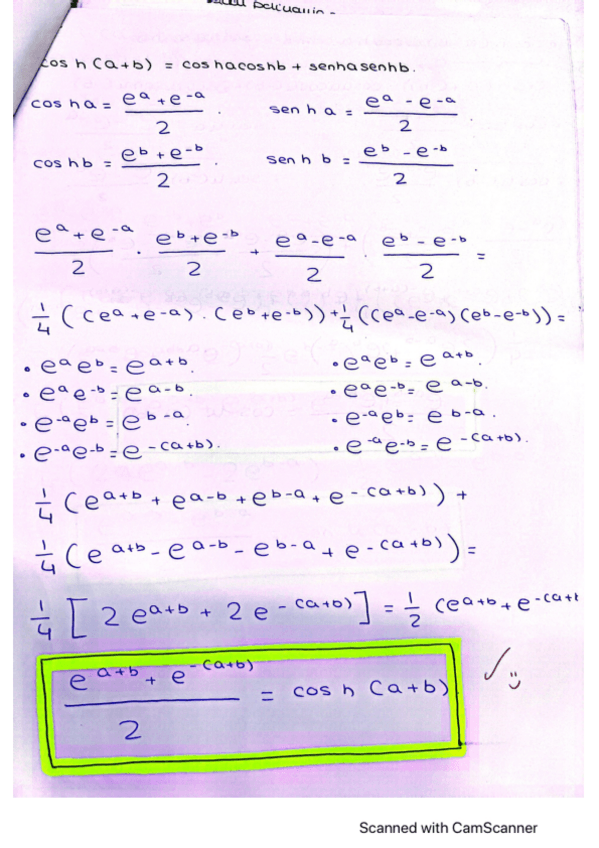 cos h (a+b) = cos h a cos h b + sen h a sen h b.
cos h a = (e^a + e^-a)/2 . sen h a = (e^a - e^-a)/2 .
cos h b = (e^b + e^-b)/2 . sen h b = (e^b - e^-b)/2 .
(e^a + e^-a)/2 · (e^b + e^-b)/2 + (e^a - e^-a)/2 · (e^b - e^-b)/2 =
1/4 ((e^a + e^-a) · (e^b + e^-b)) + 1/4 ((e^a - e^-a)(e^b - e^-b)) =
• e^a e^b = e^a+b. • e^a e^b = e^a+b.
• e^a e^-b = e^a-b • e^a e^-b = e^a-b.
• e^-a e^b = e^b-a. • e^-a e^b = e^b-a.
• e^-a e^-b = e^-(a+b). • e^-a e^-b = e^-(a+b).
1/4 (e^a+b + e^a-b + e^b-a + e^-(a+b)) +
1/4 (e^a+b - e^a-b - e^b-a + e^-(a+b)) =
1/4 [2 e^a+b + 2 e^-(a+b)] = 1/2 (e^a+b + e^-(a+
(e^a+b + e^-(a+b))/2 = cos h (a+b)
Scanned with CamScanner